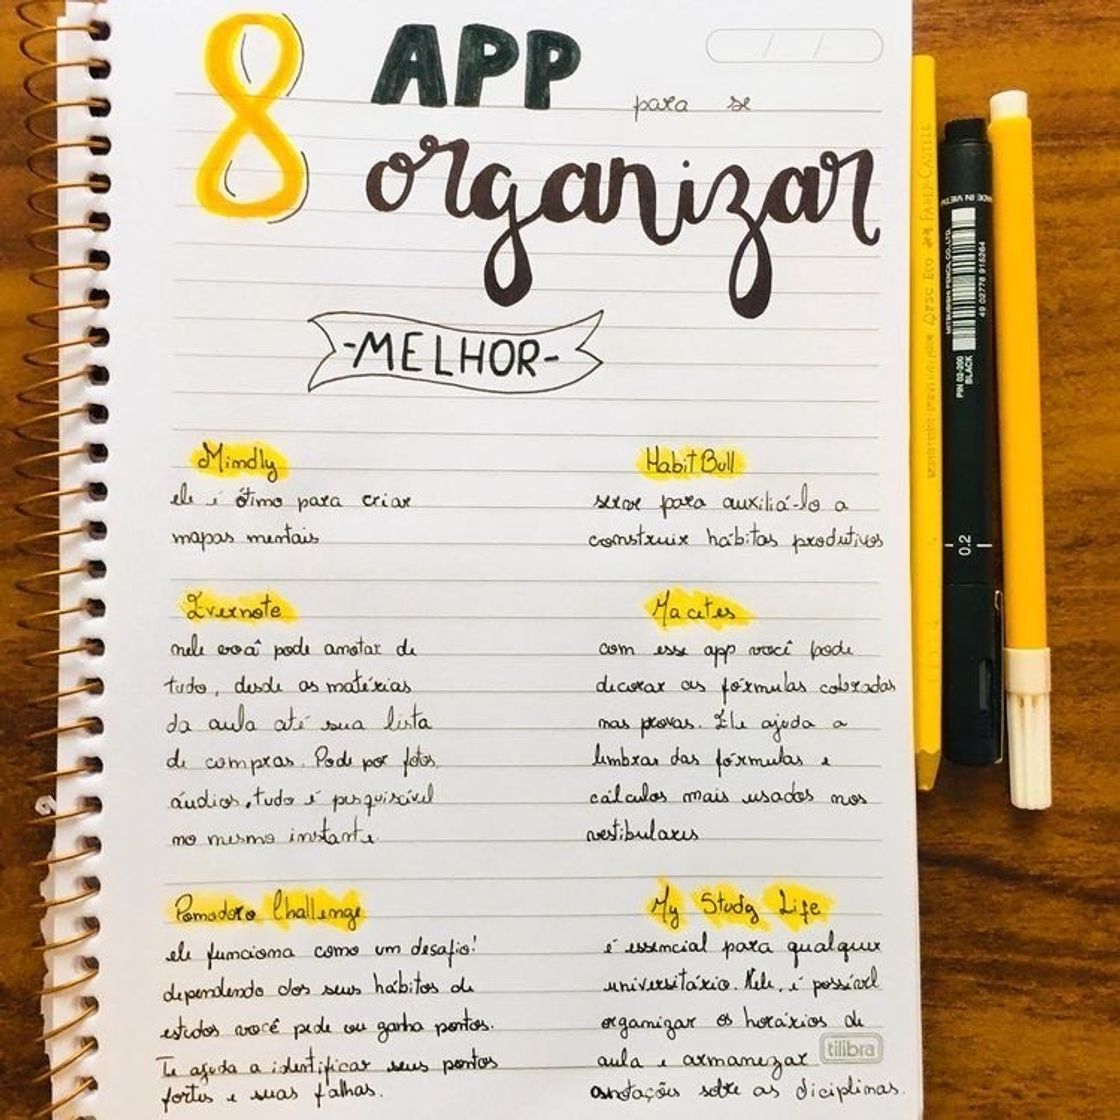 8 APP para se
organizar
-MELHOR-
Mindly
ele é ótimo para criar
mapas mentais
Habit Bull
serve para auxiliá-lo a
construir hábitos produtivos
Evernote
nele você pode anotar de
tudo, desde as matérias
da aula até sua lista
de compras. Pode por fotos,
áudios, tudo é pesquisável
no mesmo instante.
Macetes
com esse app você pode
decorar as fórmulas cobradas
nas provas. Ele ajuda a
lembrar das fórmulas e
cálculos mais usados nos
vestibulares
Pomodoro Challenge
ele funciona como um desafio!
dependendo dos seus hábitos de
estudos você pede ou ganha pontos.
Te ajuda a identificar seus pontos
fortes e suas falhas.
My Study Life
é essencial para qualquer
universitário. Nele, é possível
organizar os horários de
aula e armanezar
anotações sobre as diciplinas.
tilibra
FABER-CASTELL
MADE IN VIETNAM
MITSUBISHI PENCIL CO., LTD.
49 02778 915264
PIN 02-200
BLACK
0.2